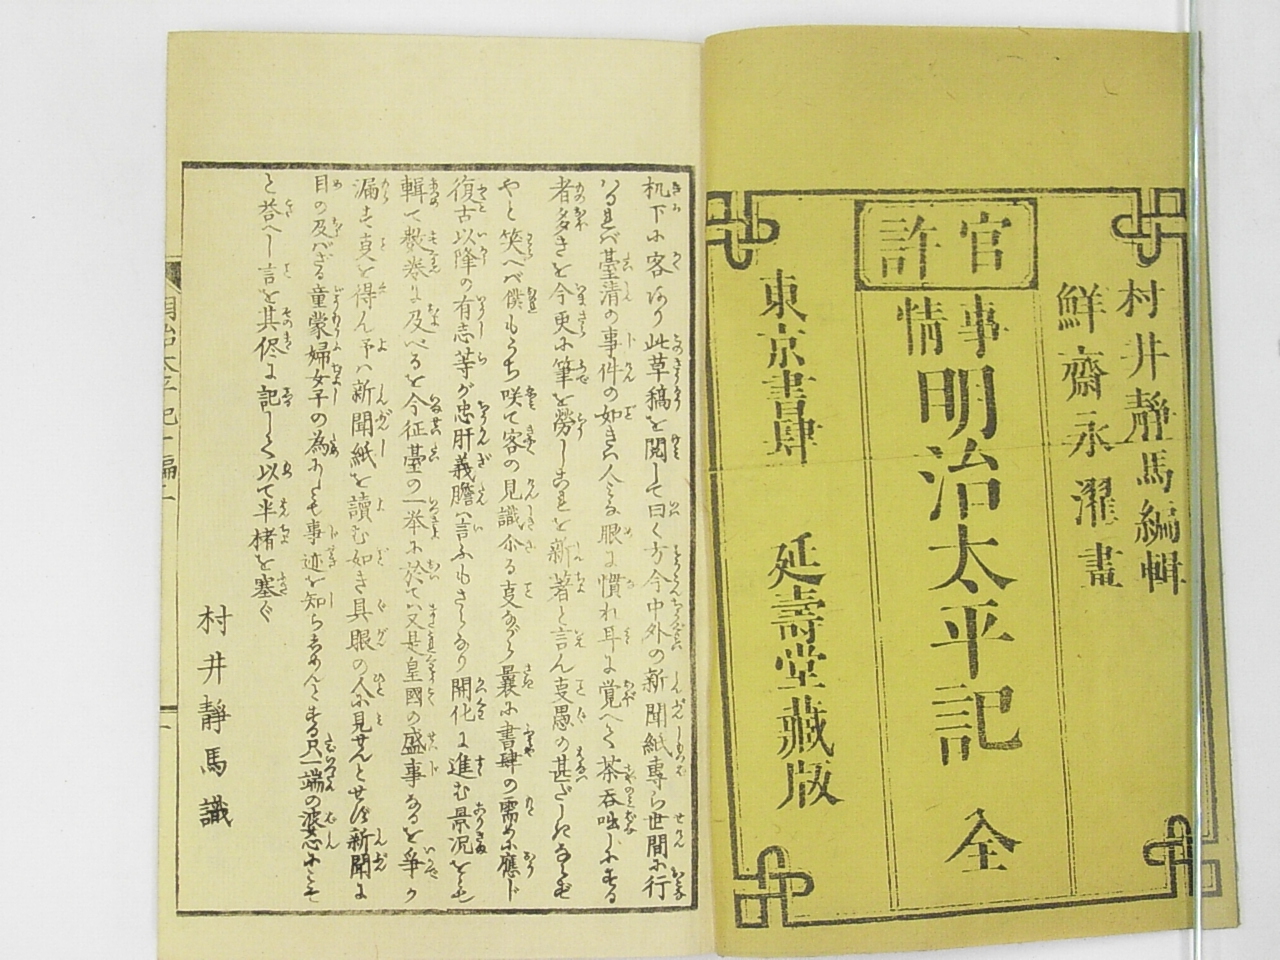 村井靜馬編輯
鮮齋永濯畫
官許
事情
明治太平記 全
東京書肆 延壽堂藏版
机下に客あり此草稿を閲して曰く方今中外の新聞紙専ら世間に行
はるれば臺清の事件の如きハ人々眼に慣れ耳に覚へて茶呑咄しにする
者多きを今更に筆を勞しこれを新著と言ん事愚の甚だしきならず
やと笑へバ僕もうち咲て客の見識尓る事ながら曩に書肆の需めに應じ
復古以降の有志等が忠肝義膽ハ言ふもさらなり開化に進む景况をも
輯て数巻に及べるを今征臺の一挙に於てハ又是皇國の盛事なるを争か
漏す事を得ん予ハ新聞紙を讀む如き具眼の人に見せんとせず新聞に
目の及バざる童蒙婦女子の為にしも事迹を知らしめんとする只一端の
と答へし言を其侭に記して以て半楮を塞ぐ
村井靜馬識
明治太平記十編一